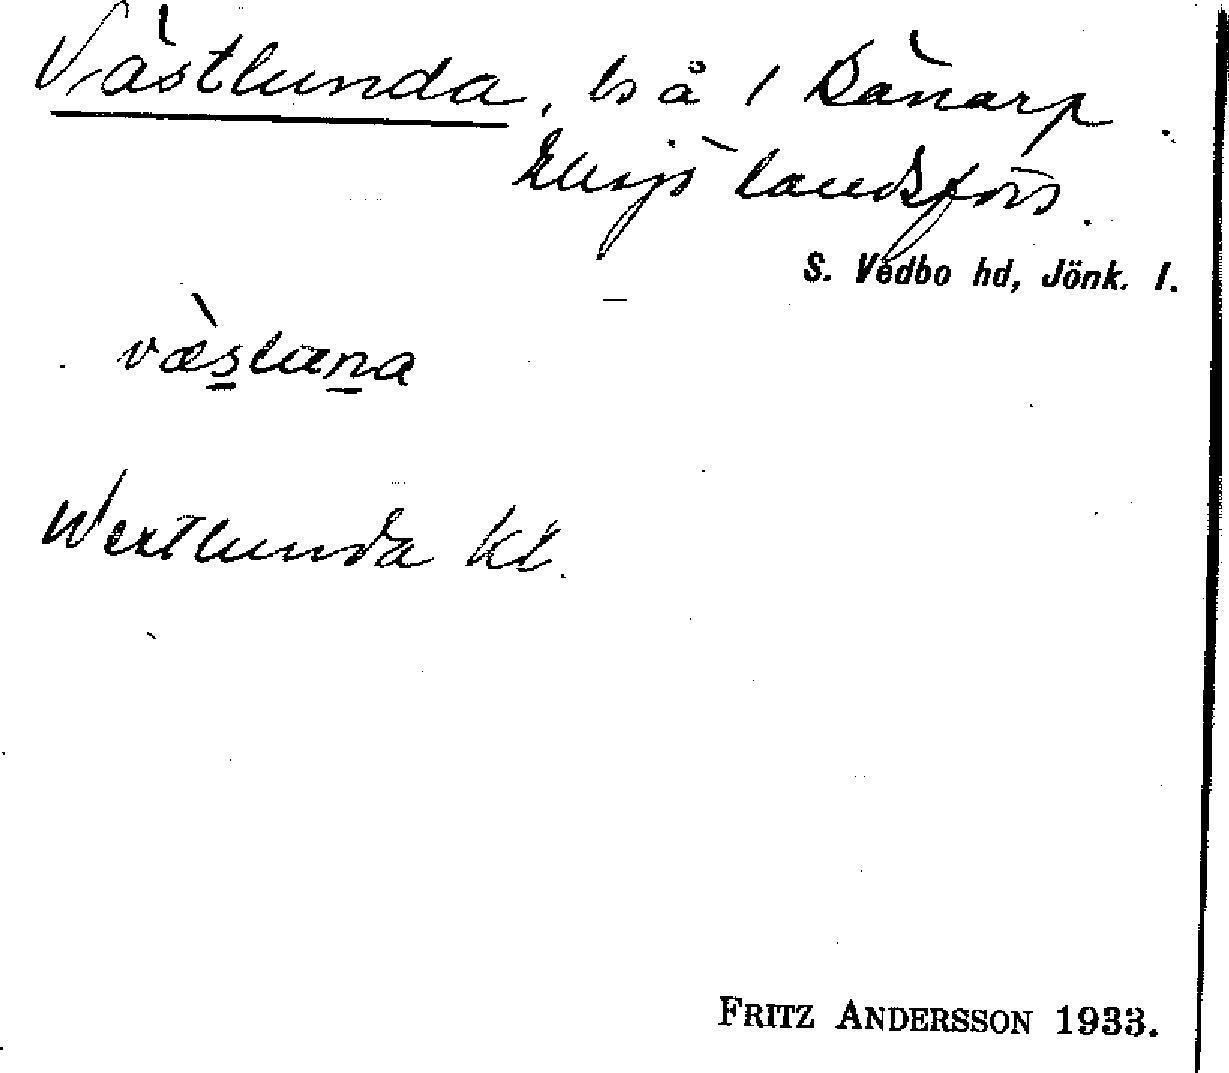 Västlunda, ls å 1 Bänarp.
Eksjö landsförs.
S. Vedbo hd, Jönk. l.
væsluna
Westlunda Kt.
FRITZ ANDERSSON 1933.